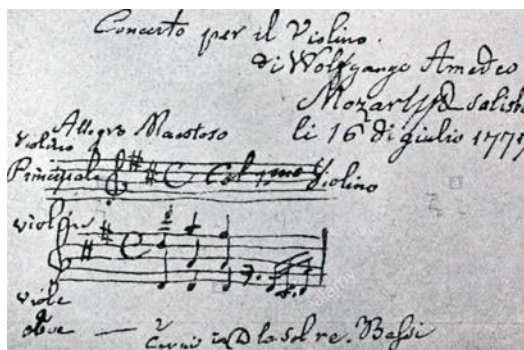 Concerto per il Violino.
di Wolfgango Amedeo
Mozart
li 16 di giulio 1777
Allegro Maestoso
Violino
Principale
Col primo Violino
violini
viole
oboe
Corni in D la sol re. Bassi
alamy
a